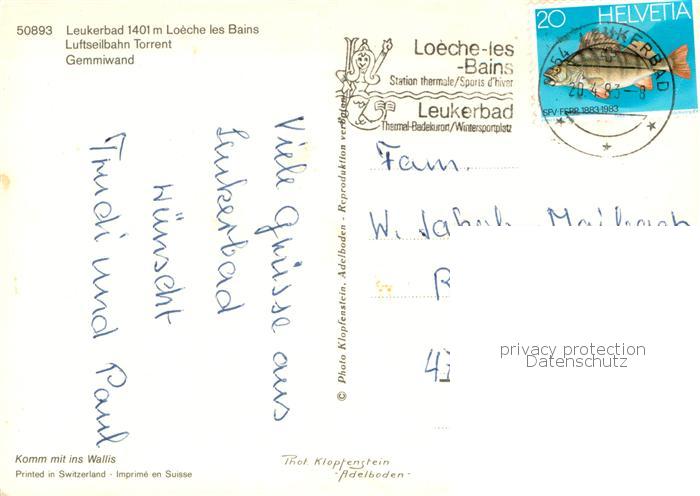 50893 Leukerbad 1401 m Loèche les Bains
Luftseilbahn Torrent
Gemmiwand
Loèche-les
-Bains
Station thermale/Sports d'hiver
Leukerbad
Thermal-Badekurort/Wintersportplatz
20 HELVETIA
3954 LEUKERBAD
20.4.83-8
SFV FSPP 1883-1983
Viele Grüsse aus
Leukerbad
wünscht
Trudi und Paul
© Photo Klopfenstein, Adelboden - Reproduktion verboten
Fam.
W. Maibach
privacy protection
Datenschutz
Komm mit ins Wallis
Printed in Switzerland - Imprimé en Suisse
Phot. Klopfenstein
- Adelboden -